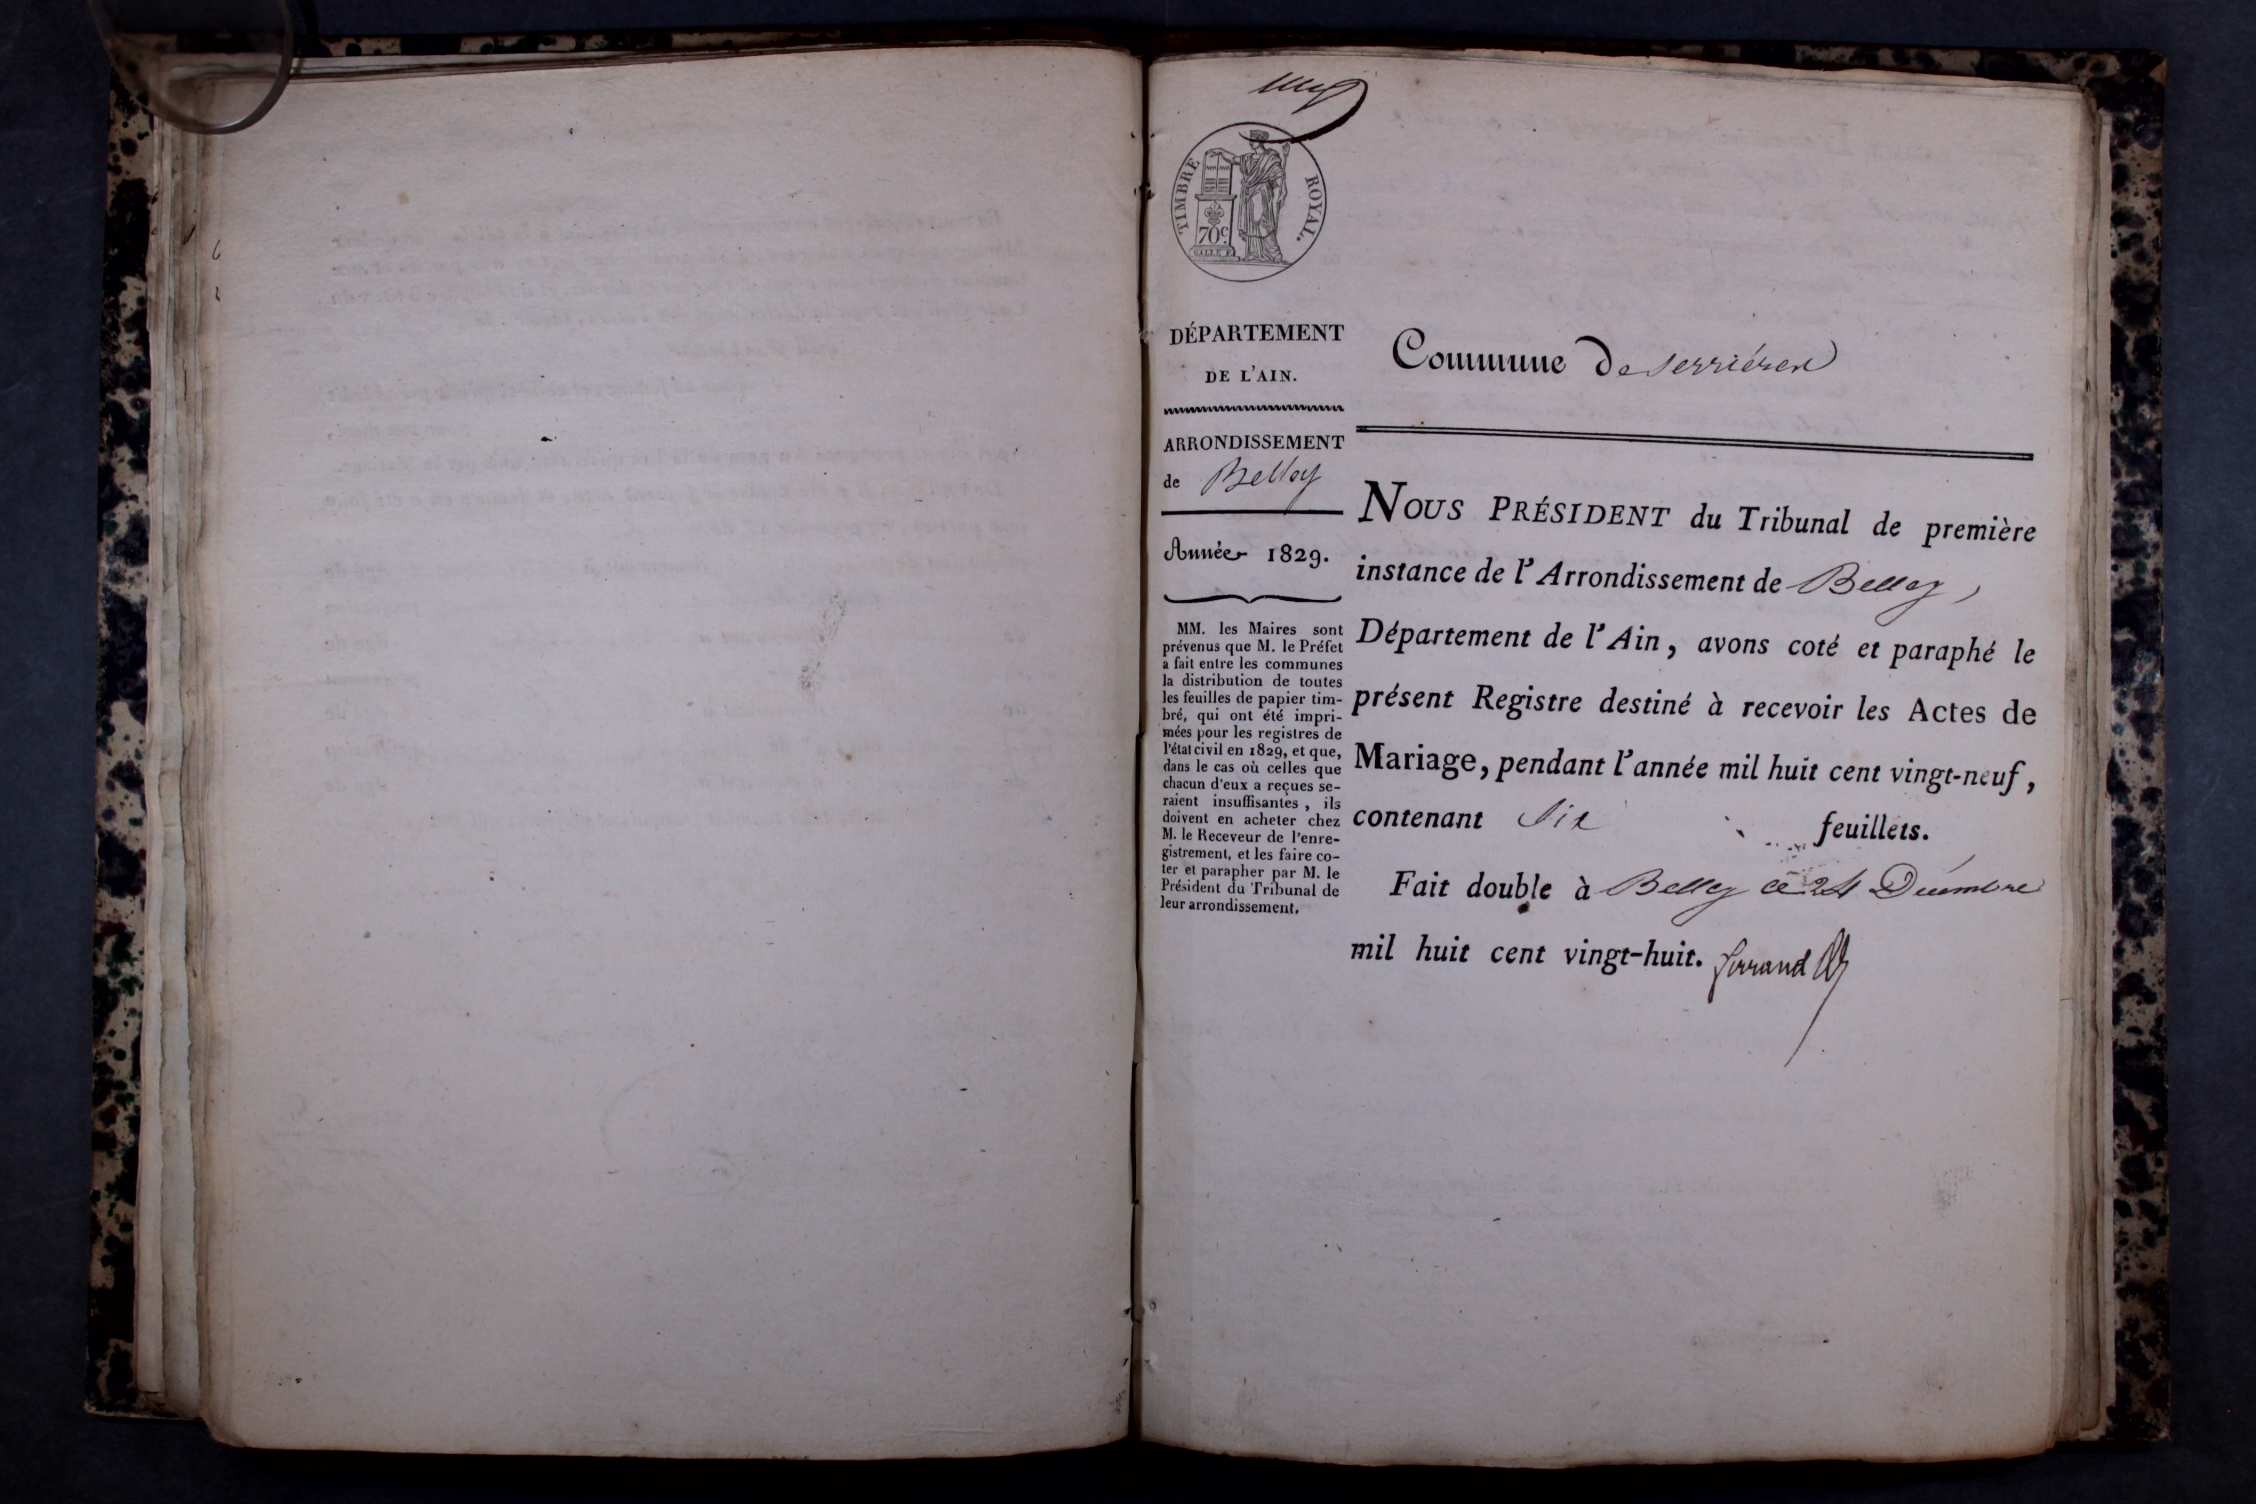 ung
TIMBRE ROYAL.
70c.
DÉPARTEMENT
DE L'AIN.
ARRONDISSEMENT
de Belley
Année 1829.
MM. les Maires sont
prévenus que M. le Préfet
a fait entre les communes
la distribution de toutes
les feuilles de papier tim-
bré, qui ont été impri-
mées pour les registres de
l'état civil en 1829, et que,
dans le cas où celles que
chacun d'eux a reçues se-
raient insuffisantes, ils
doivent en acheter chez
M. le Receveur de l'enre-
gistrement, et les faire co-
ter et parapher par M. le
Président du Tribunal de
leur arrondissement.
Commune De serriéres
NOUS PRÉSIDENT du Tribunal de première
instance de l'Arrondissement de Belley,
Département de l'Ain, avons coté et paraphé le
présent Registre destiné à recevoir les Actes de
Mariage, pendant l'année mil huit cent vingt-neuf,
contenant Six feuillets.
Fait double à Belley ce 24 Décembre
mil huit cent vingt-huit. ferrand